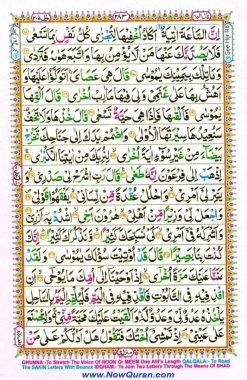 ٢٨٣
اِنَّ السَّاعَةَ اٰتِيَةٌ اَكَادُ اُخْفِيْهَا لِتُجْزٰى كُلُّ نَفْسٍۭ بِمَا تَسْعٰى
فَلَا يَصُدَّنَّكَ عَنْهَا مَنْ لَّا يُؤْمِنُ بِهَا وَاتَّبَعَ هَوٰىهُ فَتَرْدٰى
وَمَا تِلْكَ بِيَمِيْنِكَ يٰمُوْسٰى قَالَ هِيَ عَصَايَ اَتَوَكَّؤُا عَلَيْهَا وَ
اَهُشُّ بِهَا عَلٰى غَنَمِيْ وَلِيَ فِيْهَا مَاٰرِبُ اُخْرٰى قَالَ اَلْقِهَا
يٰمُوْسٰى فَاَلْقٰىهَا فَاِذَا هِيَ حَيَّةٌ تَسْعٰى قَالَ خُذْهَا وَلَا تَخَفْ
سَنُعِيْدُهَا سِيْرَتَهَا الْاُوْلٰى وَاضْمُمْ يَدَكَ اِلٰى جَنَاحِكَ تَخْرُجْ
بَيْضَآءَ مِنْ غَيْرِ سُوْٓءٍ اٰيَةً اُخْرٰى لِنُرِيَكَ مِنْ اٰيٰتِنَا الْكُبْرٰى
اِذْهَبْ اِلٰى فِرْعَوْنَ اِنَّهٗ طَغٰى قَالَ رَبِّ اشْرَحْ لِيْ صَدْرِيْ وَ
يَسِّرْ لِيْٓ اَمْرِيْ وَاحْلُلْ عُقْدَةً مِّنْ لِّسَانِيْ يَفْقَهُوْا قَوْلِيْ
وَاجْعَلْ لِّيْ وَزِيْرًا مِّنْ اَهْلِيْ هٰرُوْنَ اَخِي اشْدُدْ بِهٖٓ اَزْرِيْ
وَاَشْرِكْهُ فِيْٓ اَمْرِيْ كَيْ نُسَبِّحَكَ كَثِيْرًا وَّنَذْكُرَكَ كَثِيْرًا اِنَّكَ
كُنْتَ بِنَا بَصِيْرًا قَالَ قَدْ اُوْتِيْتَ سُؤْلَكَ يٰمُوْسٰى وَلَقَدْ
مَنَنَّا عَلَيْكَ مَرَّةً اُخْرٰٓى اِذْ اَوْحَيْنَآ اِلٰٓى اُمِّكَ مَا يُوْحٰٓى اَنِ
اقْذِفِيْهِ فِي التَّابُوْتِ فَاقْذِفِيْهِ فِي الْيَمِّ فَلْيُلْقِهِ الْيَمُّ بِالسَّاحِلِ
يَاْخُذْهُ عَدُوٌّ لِّيْ وَعَدُوٌّ لَّهٗ وَاَلْقَيْتُ عَلَيْكَ مَحَبَّةً مِّنِّيْ وَلِتُصْنَعَ
عَلٰى عَيْنِيْ اِذْ تَمْشِيْٓ اُخْتُكَ فَتَقُوْلُ هَلْ اَدُلُّكُمْ عَلٰى مَنْ
GHUNNA:- To Stretch The Voice Of NOON Or MEEM One Alif's Length QALQALA:- To Read
The SAKIN Letters With Bounce IDGHAM:- To Join Two Letters Through The Means Of SHAD
www.NowQuran.com